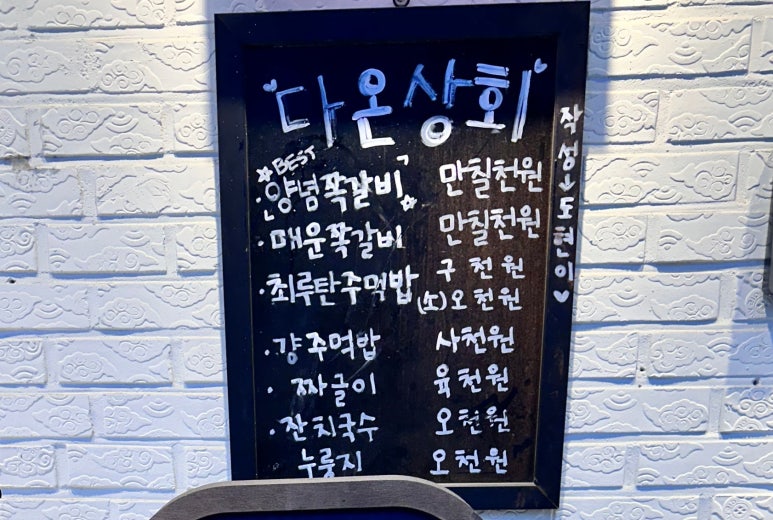 다온상회
BEST
양념쪽갈비 만칠천원
매운쪽갈비 만칠천원
최루탄주먹밥 구천원
(소)오천원
걍주먹밥 사천원
짜글이 육천원
잔치국수 오천원
누룽지 오천원
작성→도현이♥